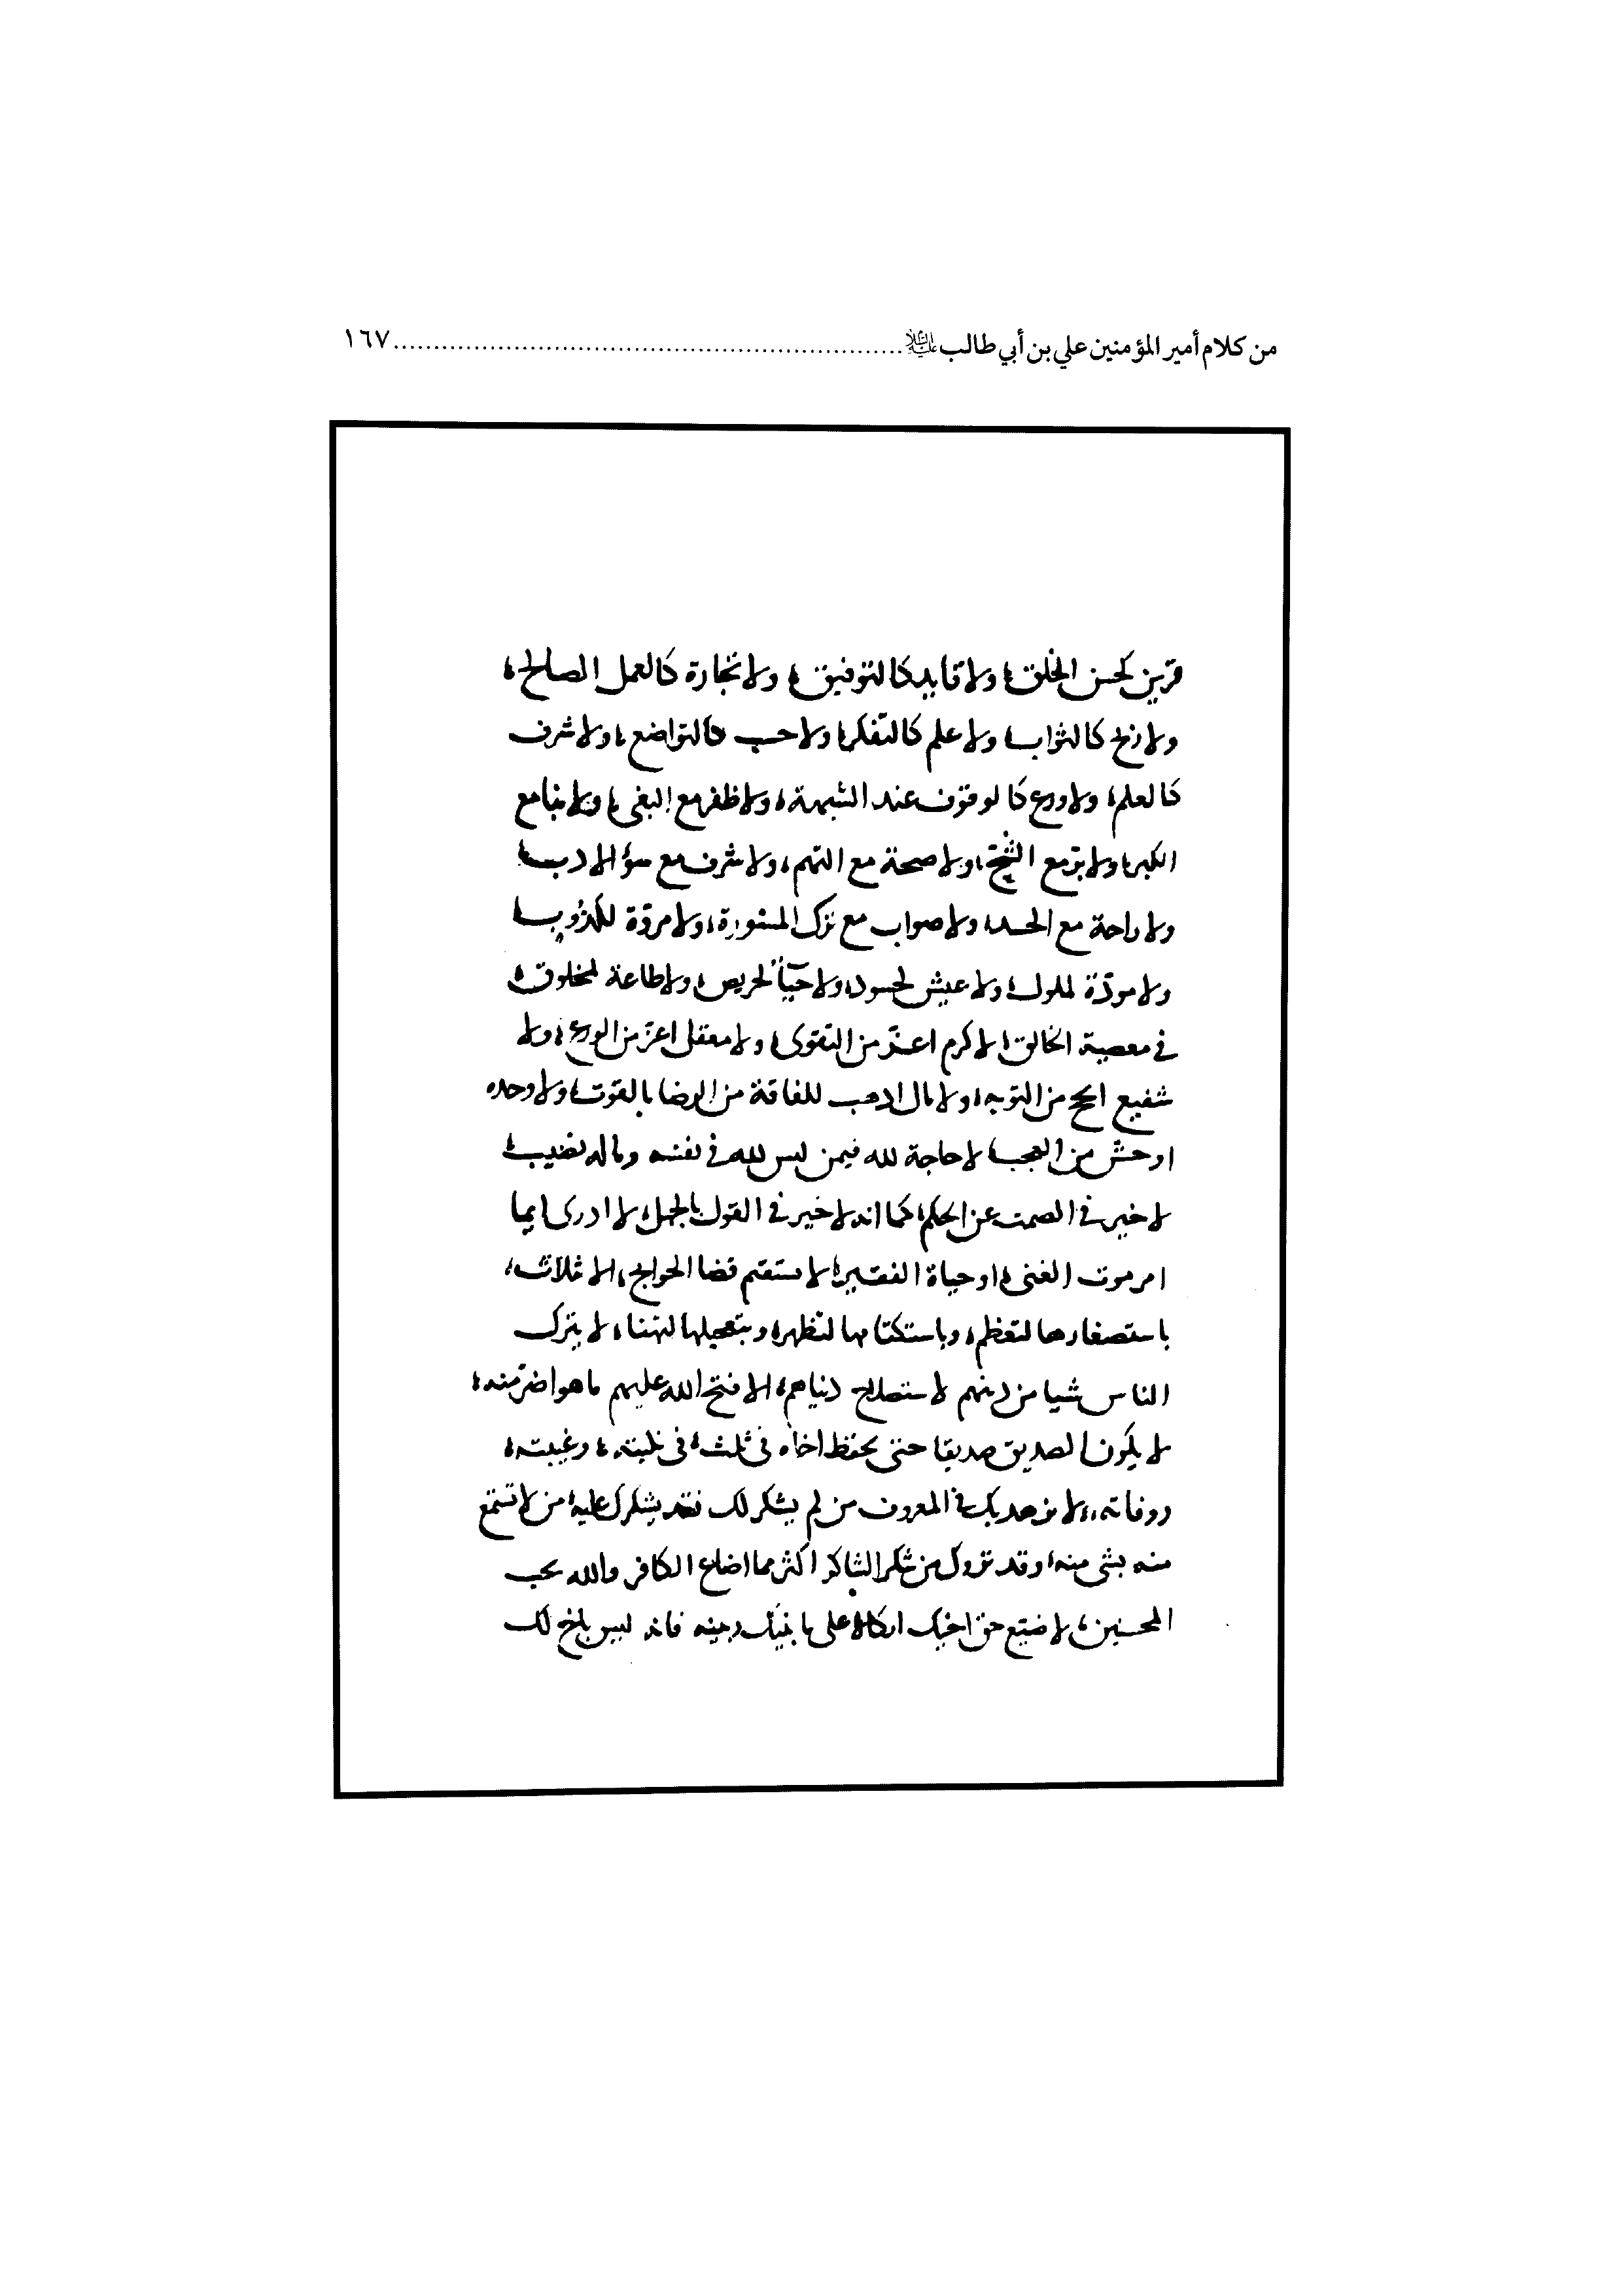 من كلام أمير المؤمنين علي بن أبي طالب عليه السلام ........ ١٦٧
قرين كحسن الخلق، ولا قايد كالتوفيق، ولا تجارة كالعمل الصالح،
ولا زرع كالثواب، ولا علم كالتفكر، ولا حسب كالتواضع، ولا شرف
كالعلم، ولا ورع كالوقوف عند الشبهة، ولا ظفر مع البغى، ولا ثنا مع
الكبر، ولا بر مع الشح، ولا صحة مع النهم، ولا شرف مع سوؤ الادب،
ولا راحة مع الحسد، ولا صواب مع ترك المشورة، ولا مروّة للكذوب،
ولا مودّة لملوك، ولا عيش لحسود، ولا حيآء لحريص، ولا طاعة لمخلوق
في معصية الخالق، لا كرم اعزّ من التقوى، ولا معقل اعزّ من الورع، ولا
شفيع انجح من التوبه، ولا مال اذهب للفاقة من الرضا بالقوت، ولا وحده
اوحش من العجب، لا حاجة لله فيمن ليس لله في نفسه وماله نصيب،
لا خير في الصمت عن الحكم، كما انه لا خير في القول بالجهل، لا ادرى ايما
امر موت الغنى، او حياة الفقير، لا يستقيم قضا الحوايج، الا ثلاث،
باستصغارها لتعظم، وباستكتامها لتظهر، وبتعجيلها لتهنا، لا يترك
الناس شيا من دينهم لاستصلاح دنياهم، الا فتح الله عليهم ما هو اضرّ منه،
لا يكون الصديق صديقا حتى يحفظ اخاه في ثلث، في نكبته، وغيبته،
ووفاته، لا يزهديك في المعروف من لم يشكر لك فقد يشكرك عليه من لا تستمتع
منه بشى منه، وقد تدرك من شكر الشاكر اكثر مما اضاع الكافر والله يحب
المحسنين، لا تضيّع حق اخيك اتكالا على ما بينك وبينه فانه ليس باخ لك